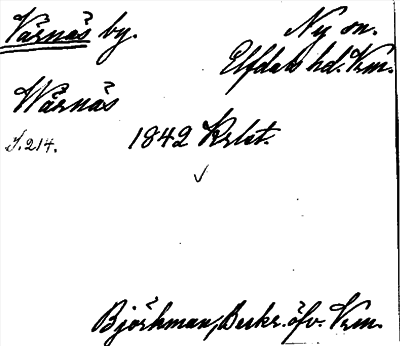 Värnäs by. Ny sn.
Elfdals hd. Vrm.
Wärnäs
S. 214. 1842 Krlst.
Björkman, Beskr. öfv. Vrm.